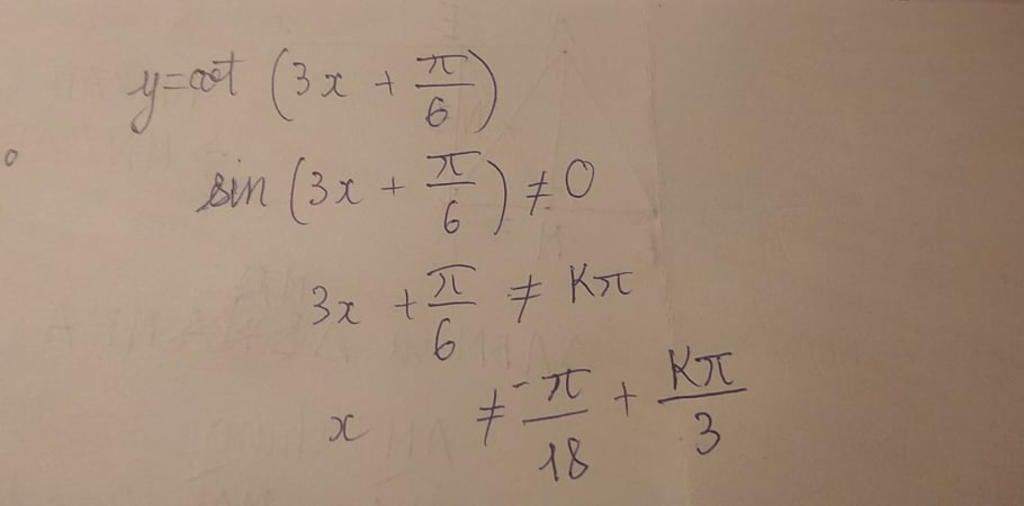 y=cot (3x + π/6)
sin (3x + π/6) ≠ 0
3x + π/6 ≠ Kπ
x ≠ -π/18 + Kπ/3